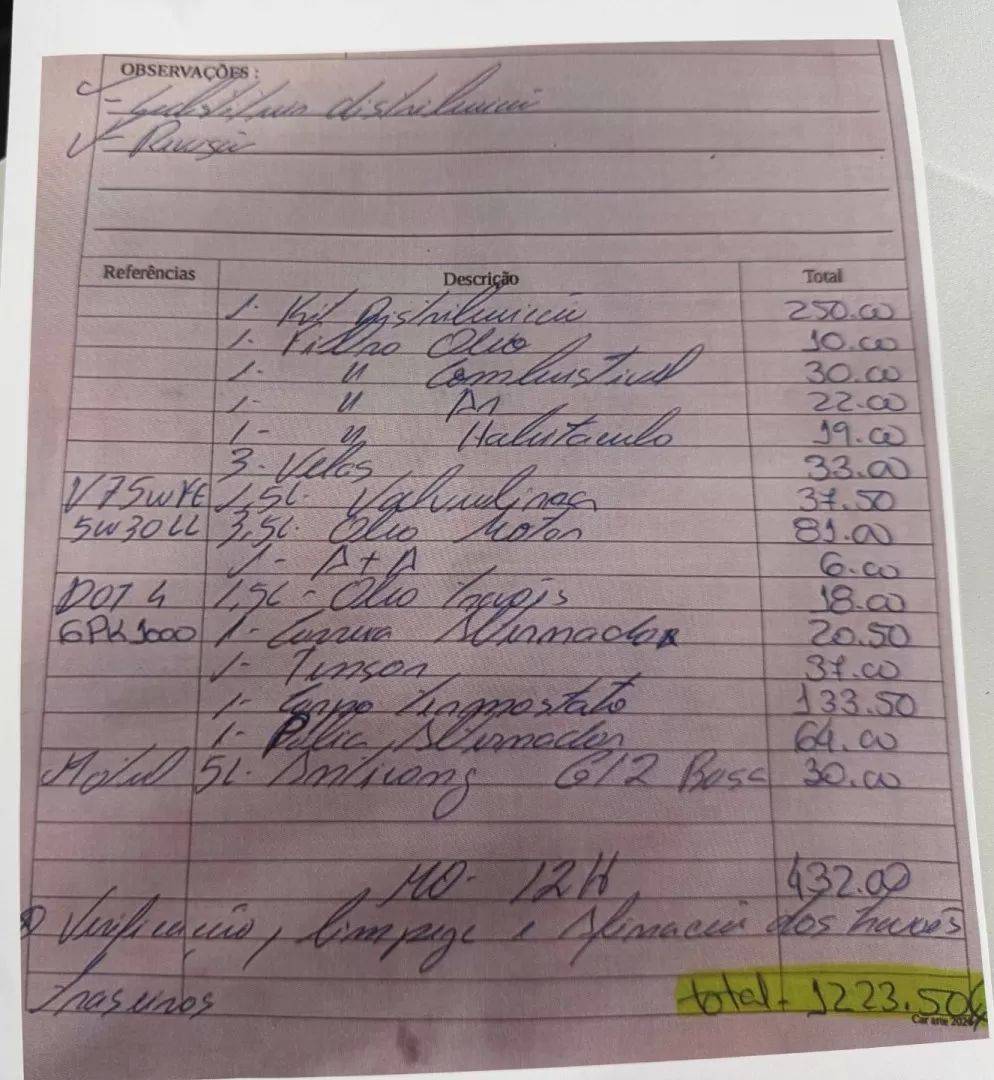 OBSERVAÇÕES :
- Substituir distribuição
- Revisão
Referências Descrição Total
1- Kit Distribuição 250.00
1- Filtro Óleo 10.00
1- " Combustível 30.00
1- " Ar 22.00
1- " Habitáculo 19.00
3- Velas 33.00
V75WYE 1,5L- Valvulinas 37.50
5W30LL 3,5L- Óleo Motor 81.00
1- A+A 6.00
DOT 4 1,5L- Óleo Travões 18.00
6PK1000 1- Correia Alternador 20.50
1- Tensor 37.00
1- Corpo Termostato 133.50
1- Polie Alternador 64.00
Motul 5L- Anticong G12 Bass 30.00
MO- 12H 432.00
Verificação, limpeza e Afinação dos travões
Traseiros total- 1223.50€
Car arte 2024